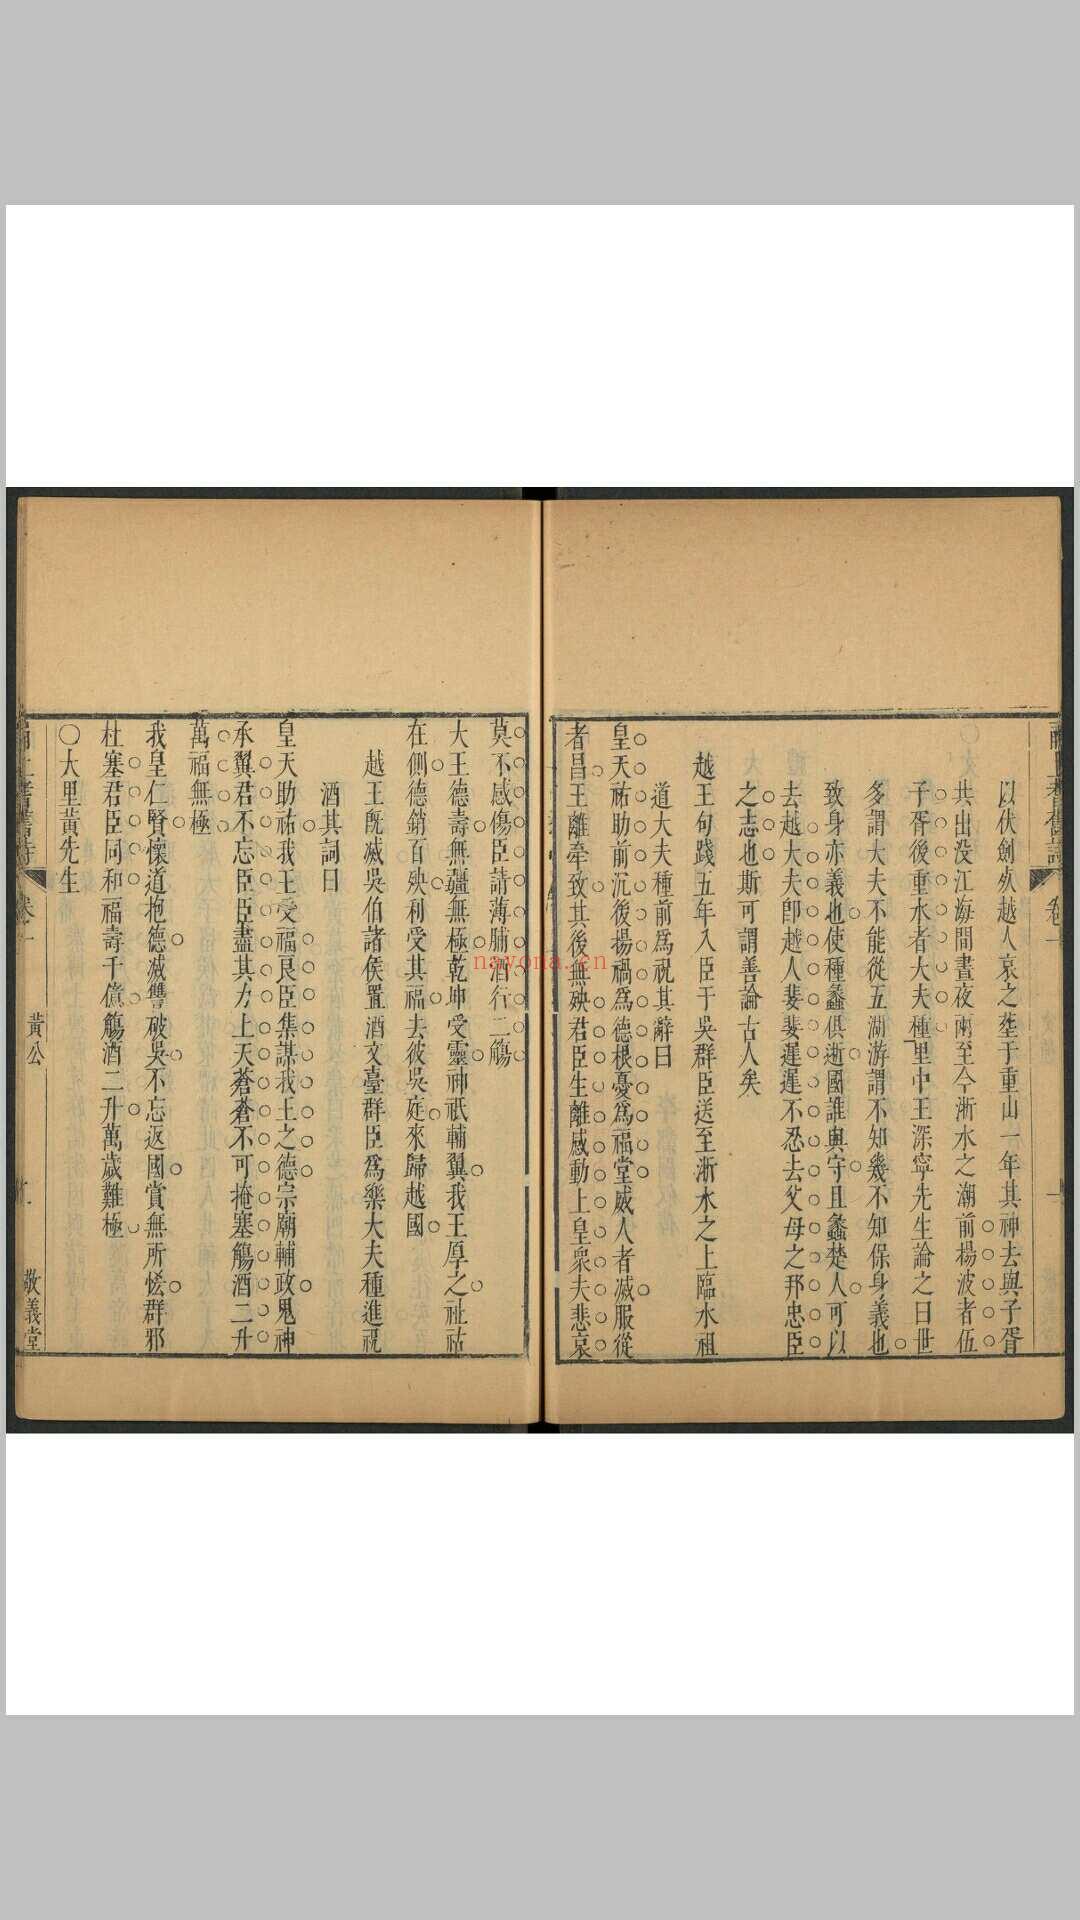 以伏劍死越人哀之塟于重山一年其神去與子胥
共出没江海間晝夜兩至今浙水之潮前楊波者伍
子胥後重水者大夫種里中王深寧先生論之曰世
多謂大夫不能從五湖游謂不知幾不知保身義也
致身亦義也使種蠡俱逝國誰與守且蠡楚人可以
去越大夫卽越人斐斐遲遲不忍去父母之邦忠臣
之志也斯可謂善論古人矣
越王句踐五年入臣于吳群臣送至浙水之上臨水祖
道大夫種前爲祝其辭曰
皇天祐助前沉後揚禍爲德根憂爲福堂威人者滅服從
者昌王離牽致其後無殃君臣生離感動上皇衆夫悲哀
莫不感傷臣請薄脯酒行二觴
大王德壽無疆無極乾坤受靈神祇輔翼我王厚之祉祐
在側德銷百殃利受其福去彼吳庭來歸越國
越王旣滅吳伯諸侯置酒文臺群臣爲樂大夫種進祝
酒其詞曰
皇天助祐我王受福良臣集謀我王之德宗廟輔政鬼神
承翼君不忘臣臣盡其力上天蒼蒼不可掩塞觴酒二升
萬福無極
我皇仁賢懷道抱德滅讐破吳不忘返國賞無所恡群邪
杜塞君臣同和福壽千億觴酒二升萬歲難極
〇大里黃先生
卷一
黃公
敬義堂
nayona.cn